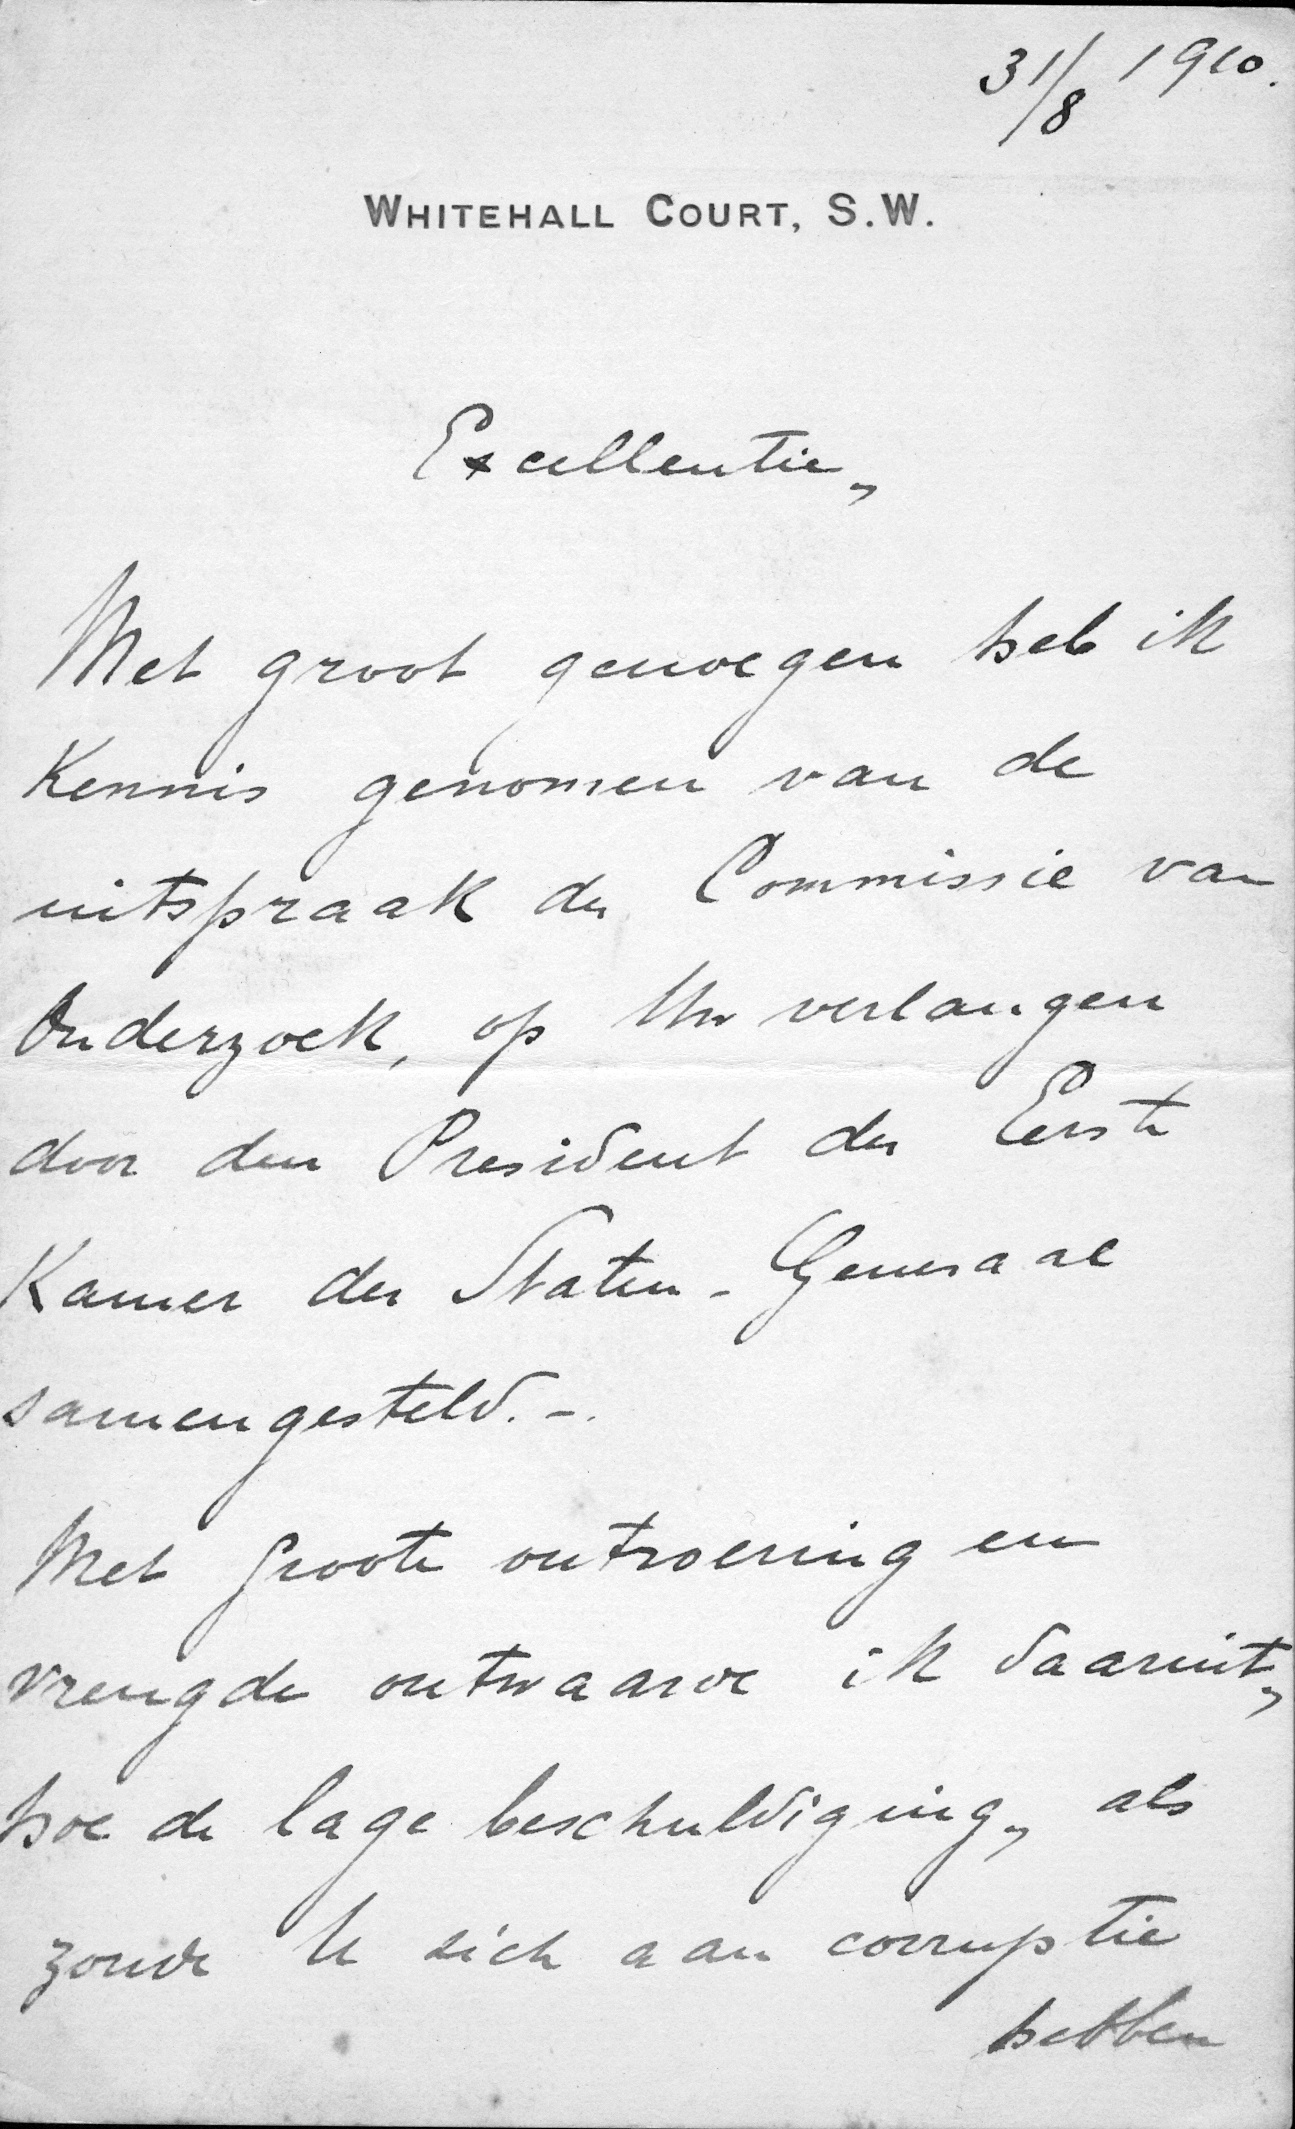 31/8 1910.
WHITEHALL COURT, S.W.
Excellentie,
Met groot genoegen heb ik
Kennis genomen van de
uitspraak der Commissie van
Onderzoek, op Uw verlangen
door den President der Eerste
Kamer der Staten-Generaal
samengesteld. -.
Met groote ontroering en
vreugde ontwaarde ik daaruit,
hoe de lage beschuldiging, als
zoude U sich aan corruptie
hebben